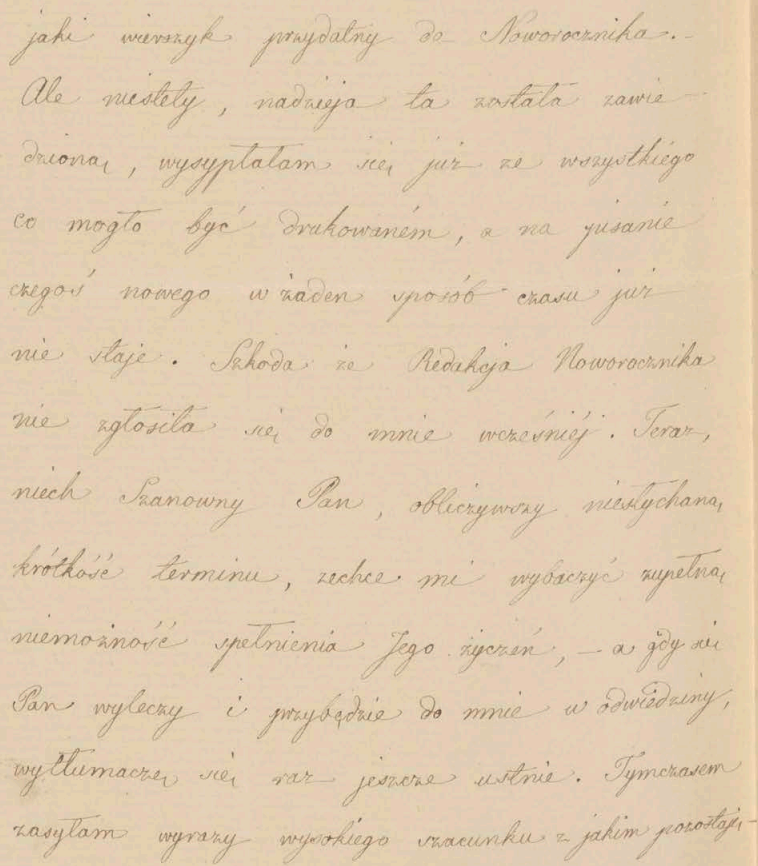 jaki wierszyk przydatny do Noworocznika. –
Ale niestety, nadzieja ta została zawie–
dzioną, wysypłałam się już ze wszystkiégo
co mogło być drukowaném, a na pisanie
czegoś nowego w żaden sposób czasu już
nie staje. Szkoda że Redakcja Noworocznika
nie zgłosiła się do mnie wcześniéj. Teraz,
niech Szanowny Pan, obliczywszy niesłychaną
krótkość terminu, zechce mi wybaczyć zupełną
niemożność spełnienia Jego życzeń, – a gdy się
Pan wyleczy i przybędzie do mnie w odwiedziny,
wytłumaczę się raz jeszcze ustnie. Tymczasem
zasyłam wyrazy wysokiego szacunku z jakim pozostaję –